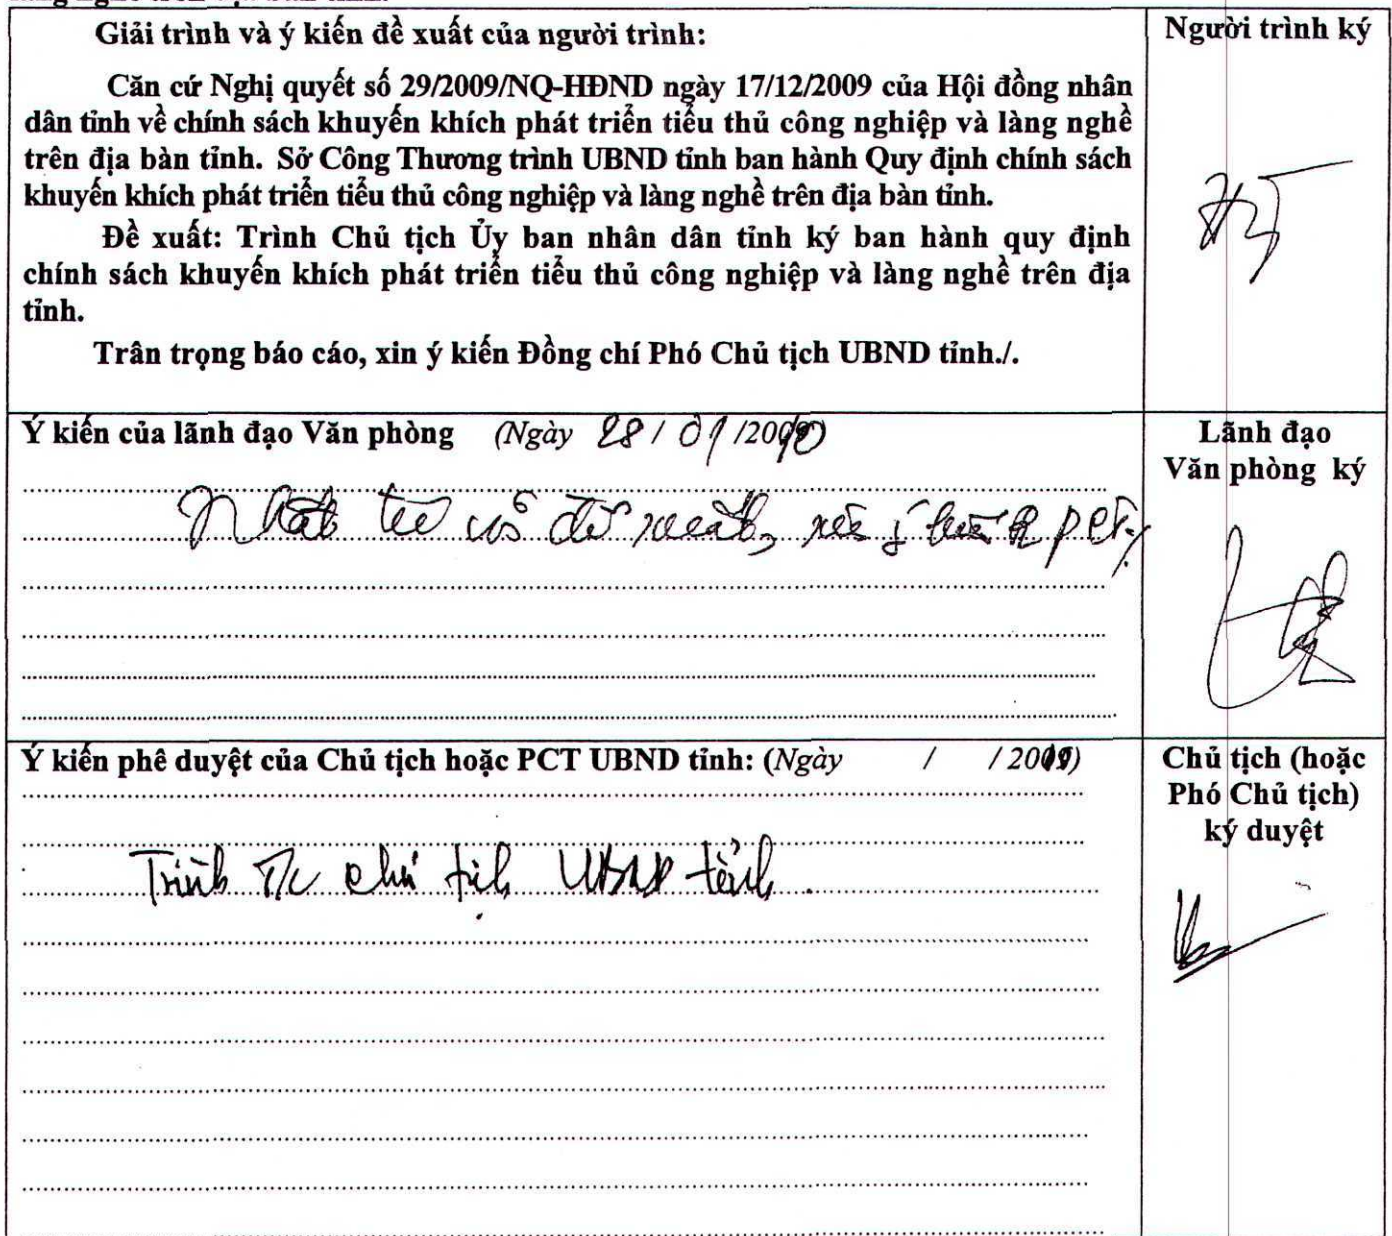 Giải trình và ý kiến đề xuất của người trình:
Người trình ký
Căn cứ Nghị quyết số 29/2009/NQ-HĐND ngày 17/12/2009 của Hội đồng nhân
dân tỉnh về chính sách khuyến khích phát triển tiểu thủ công nghiệp và làng nghề
trên địa bàn tỉnh. Sở Công Thương trình UBND tỉnh ban hành Quy định chính sách
khuyến khích phát triển tiểu thủ công nghiệp và làng nghề trên địa bàn tỉnh.
Đề xuất: Trình Chủ tịch Ủy ban nhân dân tỉnh ký ban hành quy định
chính sách khuyến khích phát triển tiểu thủ công nghiệp và làng nghề trên địa
tỉnh.
Trân trọng báo cáo, xin ý kiến Đồng chí Phó Chủ tịch UBND tỉnh./.
Ý kiến của lãnh đạo Văn phòng (Ngày 28 / 01 /2010)
Lãnh đạo
Văn phòng ký
Nhất trí đề xuất, xin ý kiến PCT./
Ý kiến phê duyệt của Chủ tịch hoặc PCT UBND tỉnh: (Ngày / / 20)
Chủ tịch (hoặc
Phó Chủ tịch)
ký duyệt
Trình T/c chủ tịch UBND tỉnh.